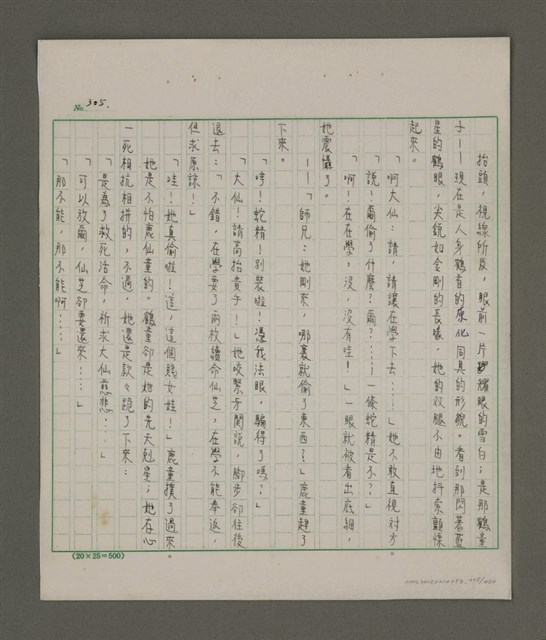 No. 305.
抬頭，視線所及，眼前一片耀眼的雪白；是那鶴童
子——現在是人身鶴首的原化同具的形貌。看到那閃着藍
星的鶴眼，尖銳如金剛的長喙，她的双腿不由地抖索顫慄
起來。
「啊大仙：請，請讓在學下去……」她不敢直視对方。
「說！爾偷了什麼？爾？……一條蛇精是不？」
「啊！在在學，沒，沒有哇！」一眼就被看出底細，
她震懾了。
——「師兄：她剛來，哪裏就偷了東西？」鹿童趕了
下來。
「哼！蛇精！別裝啦！憑我法眼，騙得了嗎？」
「大仙！請高抬貴手！」她咬緊牙関說，脚步卻往後
退去：「不錯，在學要了兩枚續命仙芝，在學不能奉返，
但求原諒！」
「哇！她真偷啦！這，這個賤女娃！」鹿童撲了過來。
她是不怕鹿仙童的。鶴童卻是她的先天剋星；她存心
一死相抗相拼的，不過，她還是款々跪了下來：
「是為了救死活命，祈求大仙慈悲……」
「可以放爾，仙芝卻要還來……」
「那不能，那不能啊……」
(20×25=500)